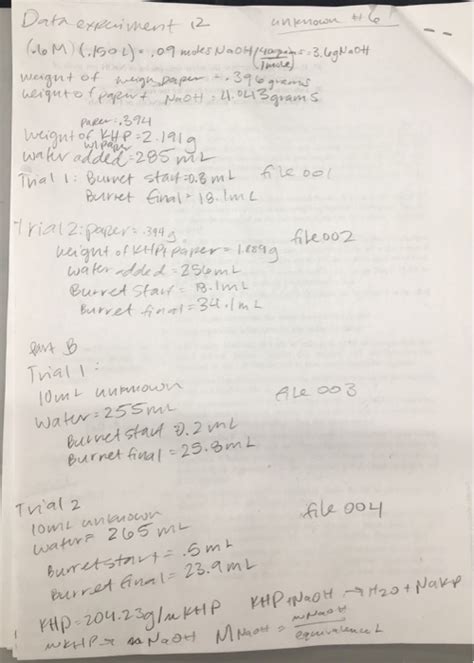 Data experiment 12 unknown #6
(.6M)(.150L)=.09 moles NaOH (40grams/1mole)=3.6g NaOH
weight of weigh paper = .396 grams
weight of paper + NaOH = 4.043 grams
paper=.394
weight of KHP = 2.191g
w/paper
water added = 285 mL
Trial 1: Burret start=0.8 mL file 001
Burret final = 18.1mL
Trial 2: paper= .394g file 002
weight of KHP+paper = 1.889g
water added = 256mL
Burret start = 18.1mL
Burret final = 34.1mL
part B
Trial 1:
10mL unknown file 003
Water = 255mL
Burret start = 0.2mL
Burret final = 25.8mL
Trial 2
10mL unknown file 004
water = 265 mL
Burret start = .5mL
Burret final = 23.9mL
KHP=204.23g/mKHP KHP+NaOH → H2O + NaKP
mKHP → mNaOH M NaOH = mNaOH/equivalence L